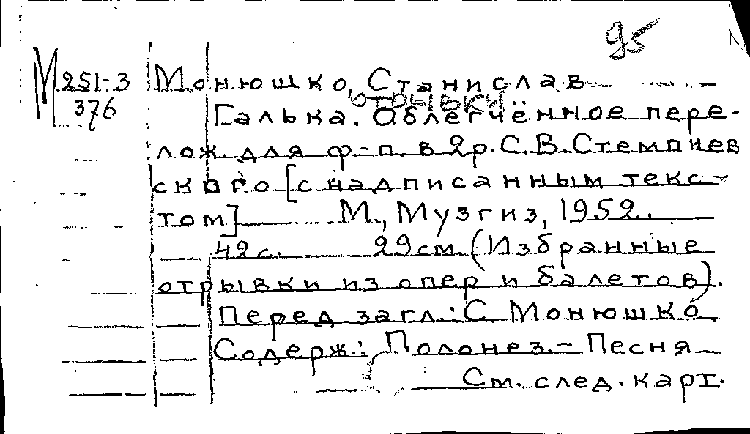 95
М 251-3 Монюшко, Станислав
376 отрывки
Галька. Облегчённое пере-
лож. для ф.-п. в 2 р. С. В. Стемпнев
ского [с надписанным текс-
том] М., Музгиз, 1952.
42 с. 29 см. (Избранные
отрывки из опер и балетов).
Перед загл.: С. Монюшко.
Содерж.: Полонез. - Песня
См. след. карт.